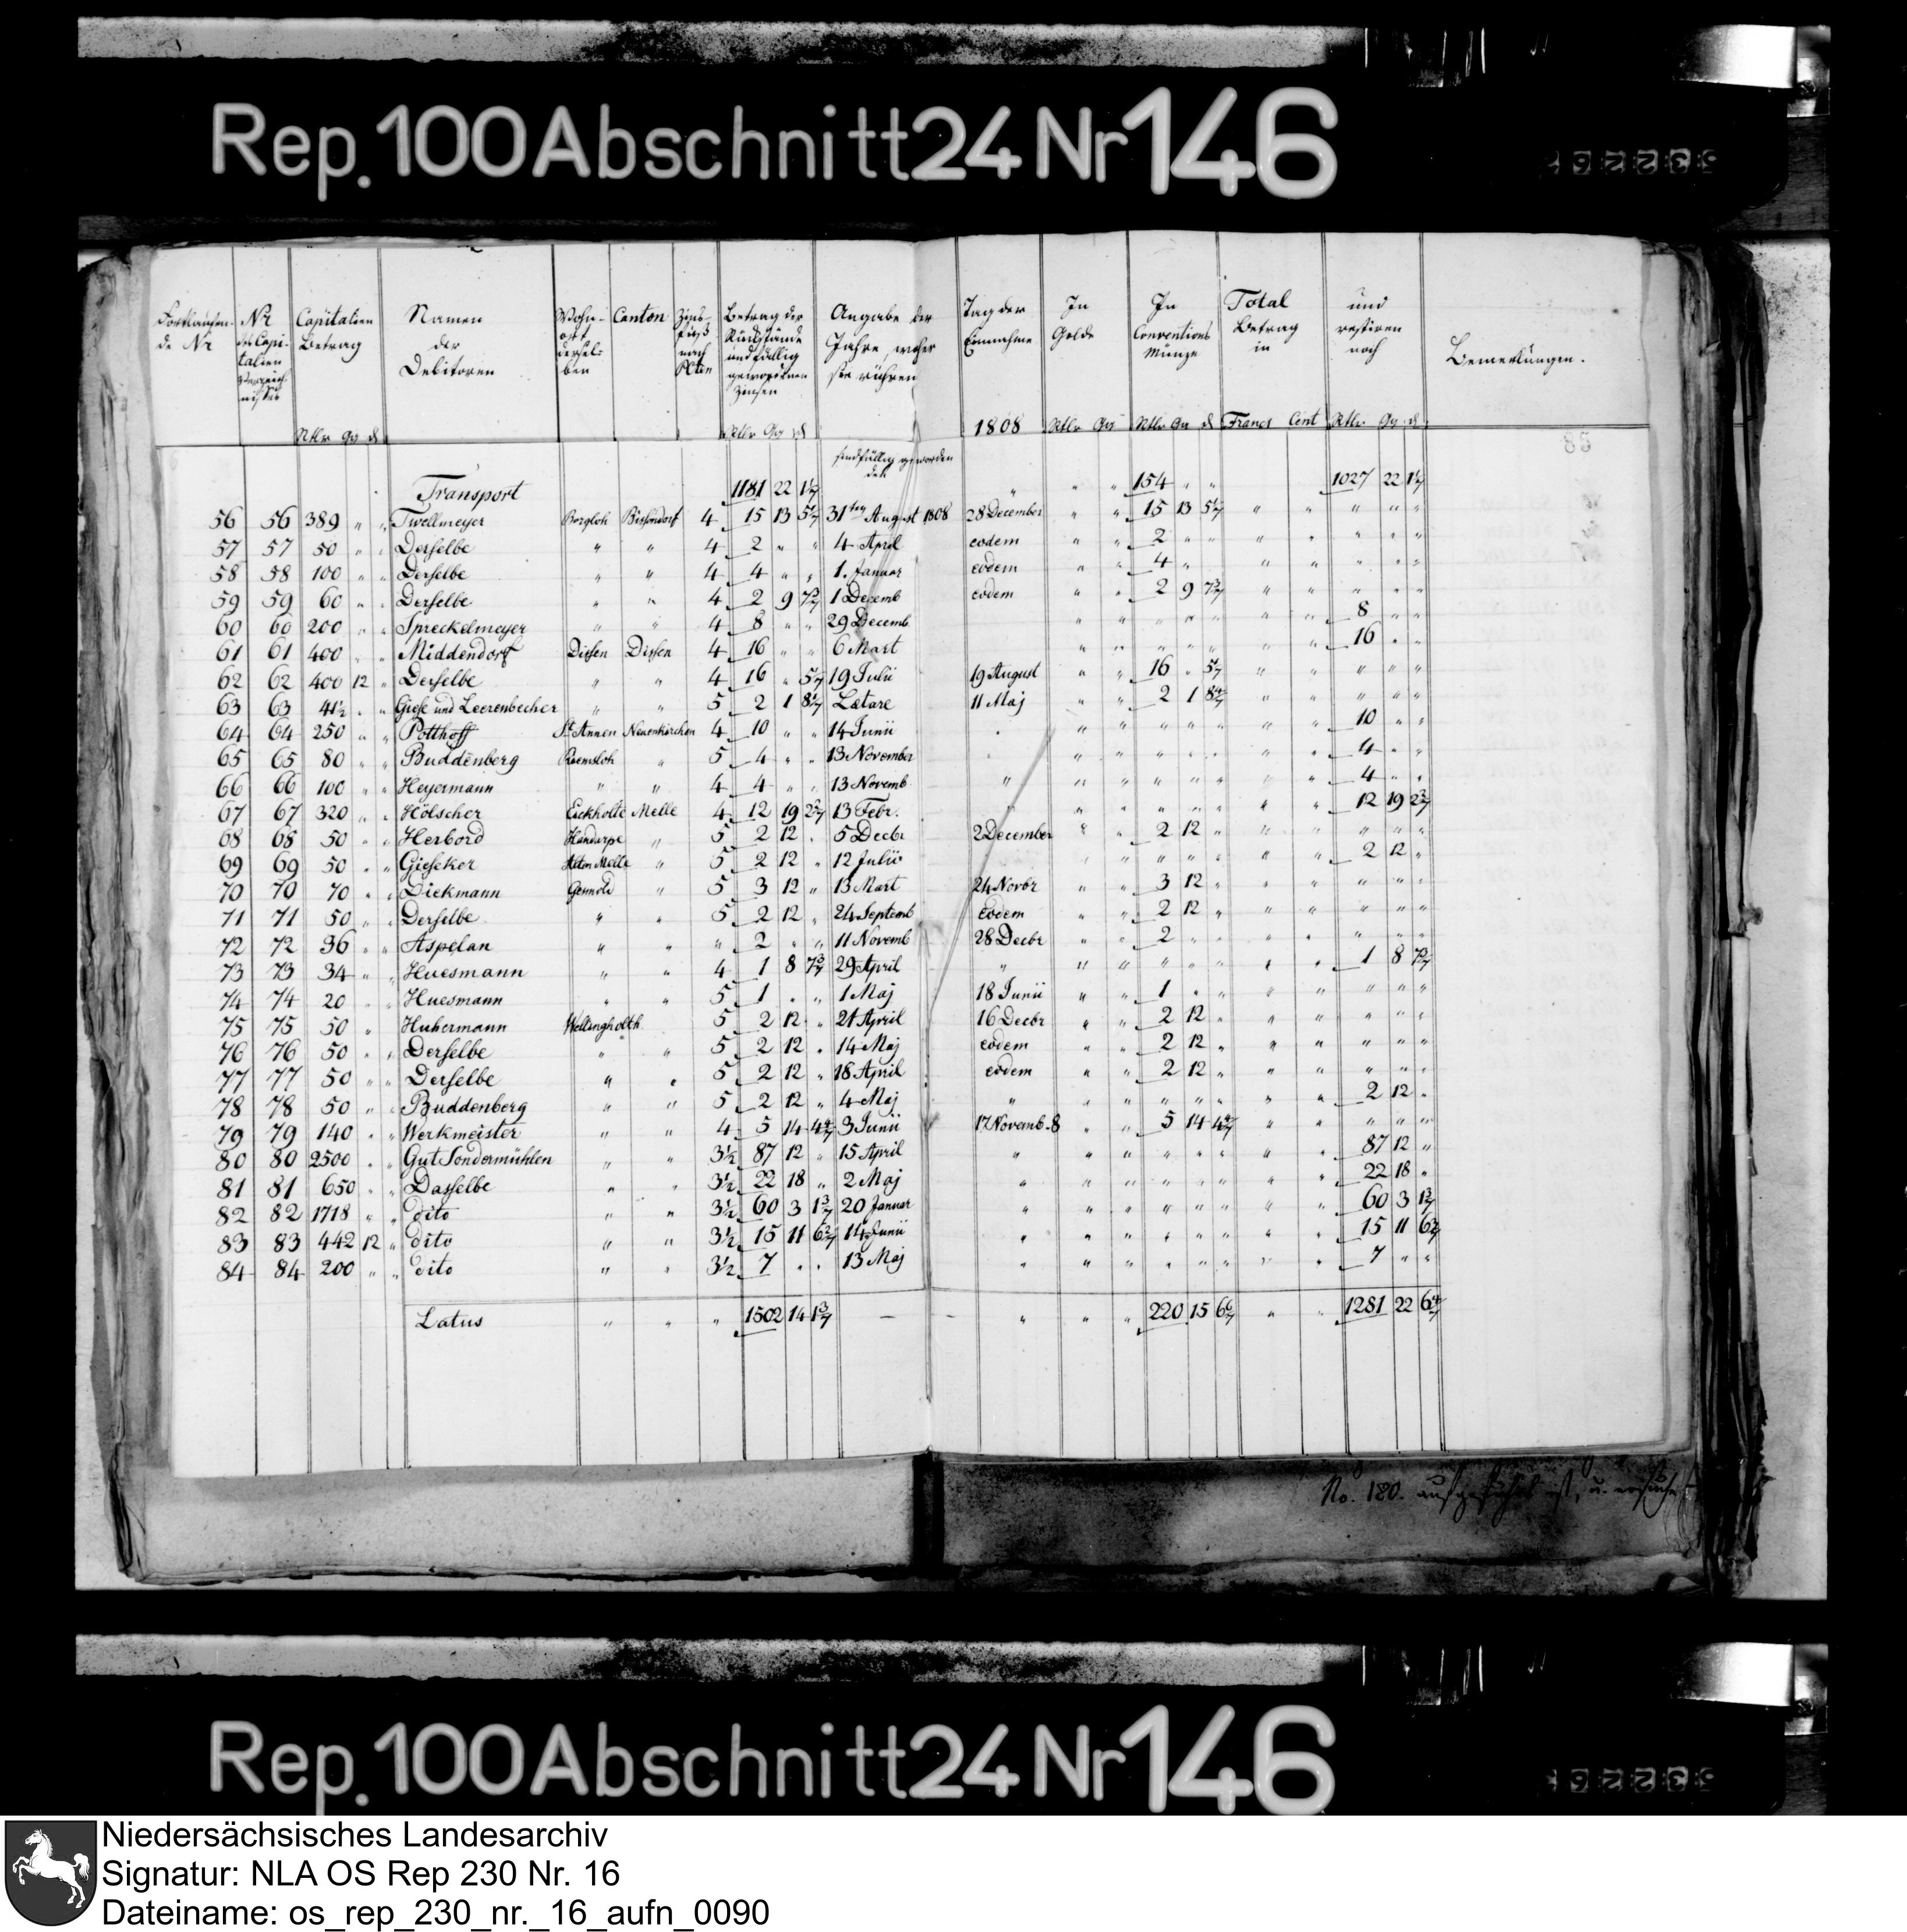 Rep. 100 Abschnitt 24 Nr 146
Fortlaufen- de Nr | Nr des Capi- talien Verzeich- nisses | Capitalien Betrag | Namen der Debitoren | Wohn- ort dersel- ben | Canton | Zins- fuß nach PCten | Betrag der Rückstände und fällig gewordenen Zinsen | Angabe der Jahre, woher sie rühren | Tag der Einnahme | In Golde | In Conventions Münze | Total Betrag in | und restiren noch | Bemerkungen.
Rtlr ggr d | Rtlr ggr d | 1808 | Rtlr ggr | Rtlr ggr d | Francs Cent | Rtlr ggr d
sind fällig geworden den
Transport 1181 22 1 1/7 " " " 154 " " 1027 22 1 1/7
56 56 389 " " Twellmeyer Borgloh Bissendorf 4 15 13 5 1/7 31ten August 1808 28 December " " 15 13 5 1/7 " " " " "
57 57 50 " " Derselbe " " 4 2 " " 4 April eodem " " 2 " " " " " " "
58 58 100 " " Derselbe " " 4 4 " " 1. Januar eodem " " 4 " " " " " "
59 59 60 " " Derselbe " " 4 2 9 7 3/7 1 Decemb eodem " " 2 9 7 3/7 " " " " "
60 60 200 " " Spreckelmeyer " " 4 8 " " 29 Decemb " " " " " " " 8 " "
61 61 400 " " Middendorf Dissen Dissen 4 16 " " 6 Mart " " " " " " " 16 " "
62 62 400 12 " Derselbe " " 4 16 " 5 1/7 19 Julii 19 August " " 16 " 5 1/7 " " " " "
63 63 41 1/2 " " Giese und Leerenbecher " " 5 2 1 8 4/7 Lætare 11 Maj " " 2 1 8 4/7 " " " " "
64 64 250 " " Potthoff St. Annen Neuenkirchen 4 10 " " 14 Junii " " " " " " " 10 " "
65 65 80 " " Buddenberg Riemsloh " 5 4 " " 13 November " " " " " " " 4 " "
66 66 100 " " Heyermann " " 4 4 " " 13 Novemb " " " " " " " " 4 " "
67 67 320 " " Hölscher Eickholte Melle 4 12 19 2 3/7 13 Febr. " " " " " " " " 12 19 2 3/7
68 68 50 " " Herbord Handarpe " 5 2 12 " 5 Decbr 2 December " " 2 12 " " " " " "
69 69 50 " " Gieseker Alten Melle " 5 2 12 " 12 Julii " " " " " " " 2 12 "
70 70 70 " " Diekmann Gesmold " 5 3 12 " 13 Mart 24 Novbr " " 3 12 " " " " " "
71 71 50 " " Derselbe " " 5 2 12 " 24 Septemb eodem " " 2 12 " " " " " "
72 72 36 " " Aspelan " " " 2 " " 11 Novemb 28 Decbr " " 2 " " " " " " "
73 73 34 " " Huesmann " " 4 1 8 7 3/7 29 April " " " " " " " " 1 8 7 3/7
74 74 20 " " Huesmann " " 5 1 " " 1 Maj 18 Junii " " 1 " " " " " " "
75 75 50 " Huhermann Wellingholth. 5 2 12 " 21 April 16 Decbr " " 2 12 " " " " " "
76 76 50 " " Derselbe " " 5 2 12 " 14 Maj eodem " " 2 12 " " " " " "
77 77 50 " " Derselbe " " 5 2 12 " 18 April eodem " " 2 12 " " " " " "
78 78 50 " " Buddenberg " " 5 2 12 " 4 Maj " " " " " " " " 2 12 "
79 79 140 " " Werkmeister " " 4 5 14 4 4/7 3 Junii 17 Novemb. 8 " " 5 14 4 4/7 " " " " "
80 80 2500 " " Gut Sondermühlen " " 3 1/2 87 12 " 15 April " " " " " " " " 87 12 "
81 81 650 " " Dasselbe " " 3 1/2 22 18 " 2 Maj " " " " " " " " 22 18 "
82 82 1718 " " dito " " 3 1/2 60 3 1 3/7 20 Januar " " " " " " " " 60 3 1 3/7
83 83 442 12 " dito " " 3 1/2 15 11 6 3/7 14 Junii " " " " " " " " 15 11 6 3/7
84 84 200 " " dito " " 3 1/2 7 " " 13 Maj " " " " " " " " 7 " "
Latus " " " 1502 14 1 3/7 — — " " " 220 15 6 6/7 " " 1281 22 6 4/7
No. 180. ausgeführt ist, u.
Rep. 100 Abschnitt 24 Nr 146
Niedersächsisches Landesarchiv
Signatur: NLA OS Rep 230 Nr. 16
Dateiname: os_rep_230_nr._16_aufn_0090